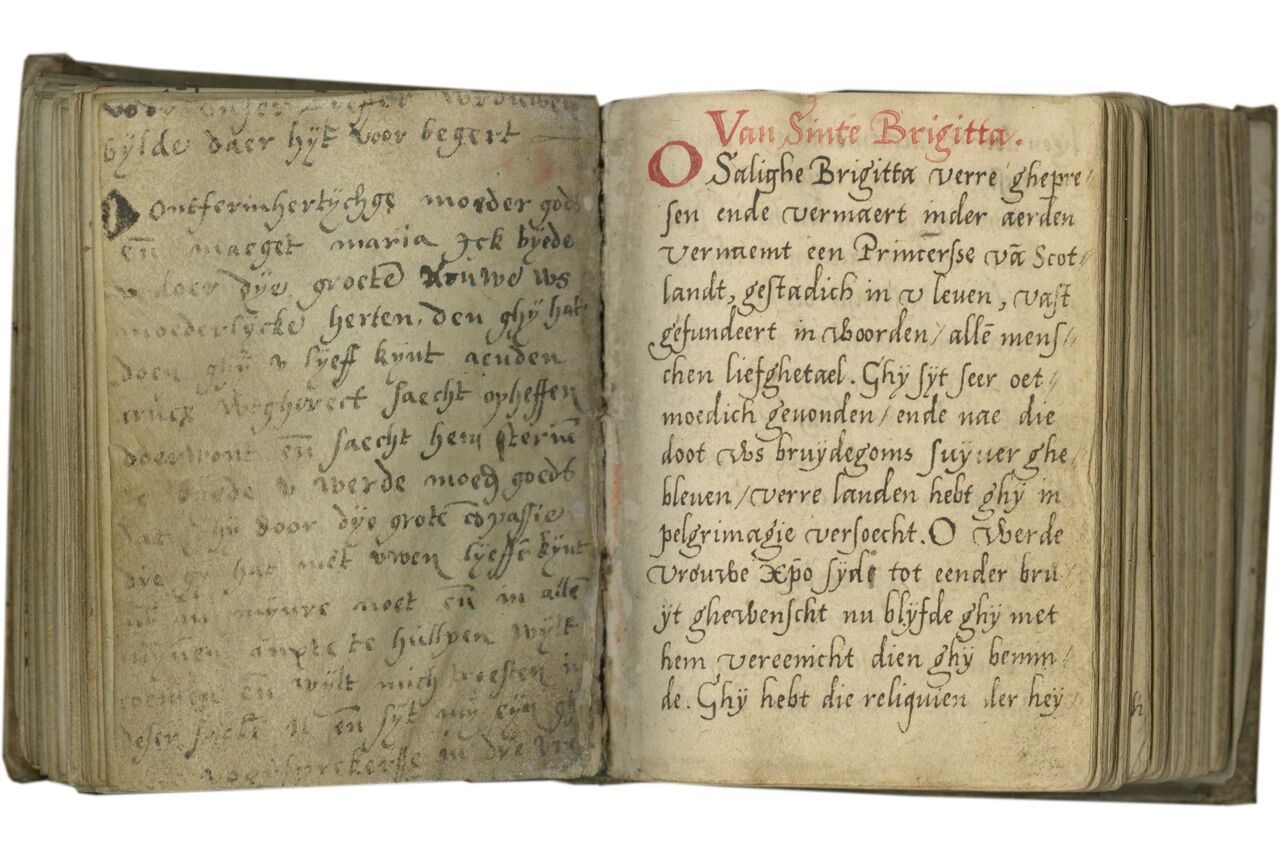 voor onser liever vrouwen
bÿlde daer hÿt voor begert
O Ontfermhertÿchge moeder gods
en̄ maeget maria Jck bÿede
v doer dÿe groete̅ rouwe ws
moederlÿcke herten, den ghÿ hat
doen ghÿ v lÿeff kÿnt aenden
crucÿ saecht opheffen
doerwont en̄ saecht hem sterue̅
v werde moed͛ goedts
ghÿ door dÿe grote̅ co̅passie
dÿe gÿ hat met vwen lÿeffe̅ kÿnt
mÿ in mÿnre noet en̄ in alle̅
mÿnen te hullpen wÿlt
en wÿlt mich troesten in
deser en̄ sÿt mÿ eÿn
voersprekersse in
Van Sinte Brigitta.
O Salighe Brigitta verre ghepre⸗
sen ende vermaert inder aerden
vernaemt een Princersse va̅ Scot⸗
landt, gestadich in v leuen, vast
gefundeert in woorden/ alle̅ mens⸗
chen liefghetael. Ghÿ sÿt seer oet⸗
moedich geuonden/ ende nae die
doot ws bruÿdegoms suÿuer ghe⸗
bleuen/ verre landen hebt ghÿ in
pelgrimagie versoecht. O werde
vrouwe Xp̄o sÿde tot eender bru⸗
ÿt ghewenscht nu blÿfde ghÿ met
hem vereenicht dien ghÿ bemin⸗
de. Ghÿ hebt die reliquien der heÿ⸗